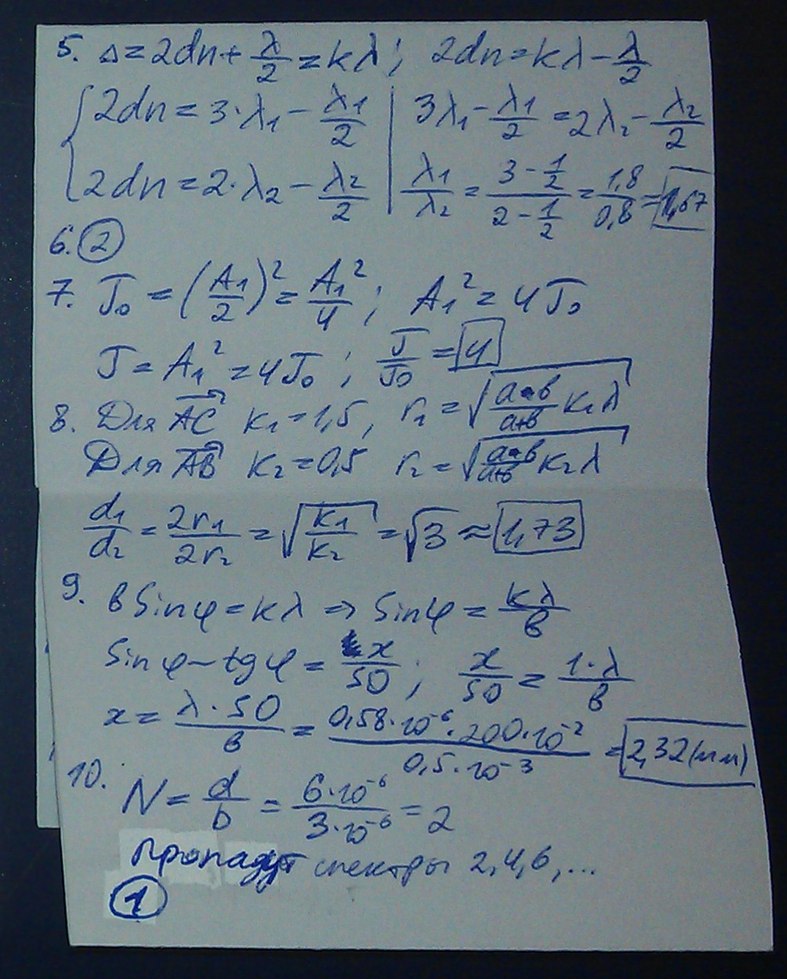 5. Δ = 2dn + λ/2 = kλ; 2dn = kλ - λ/2
{ 2dn = 3·λ₁ - λ₁/2 | 3λ₁ - λ₁/2 = 2λ₂ - λ₂/2
2dn = 2·λ₂ - λ₂/2 | λ₁/λ₂ = (3 - 1/2)/(2 - 1/2) = 1,8/0,8 = 1,67
6. 2
7. J₀ = (A₁/2)² = A₁²/4; A₁² = 4J₀
J = A₁² = 4J₀; J/J₀ = 4
8. Для AC k₁ = 1,5, r₁ = √(a·b/(a+b) k₁λ)
Для AB k₂ = 0,5 r₂ = √(a·b/(a+b) k₂λ)
d₁/d₂ = 2r₁/2r₂ = √(k₁/k₂) = √3 ≈ 1,73
9. b sin φ = kλ ⇒ sin φ = kλ/b
sin φ ~ tg φ = x/50; x/50 = 1·λ/b
x = λ·50/b = 0,58·10⁻⁶·200·10⁻²/0,5·10⁻³ = 2,32 (мм)
10.
N = d/b = 6·10⁻⁶/3·10⁻⁶ = 2
Пропадут спектры 2, 4, 6, ...
1